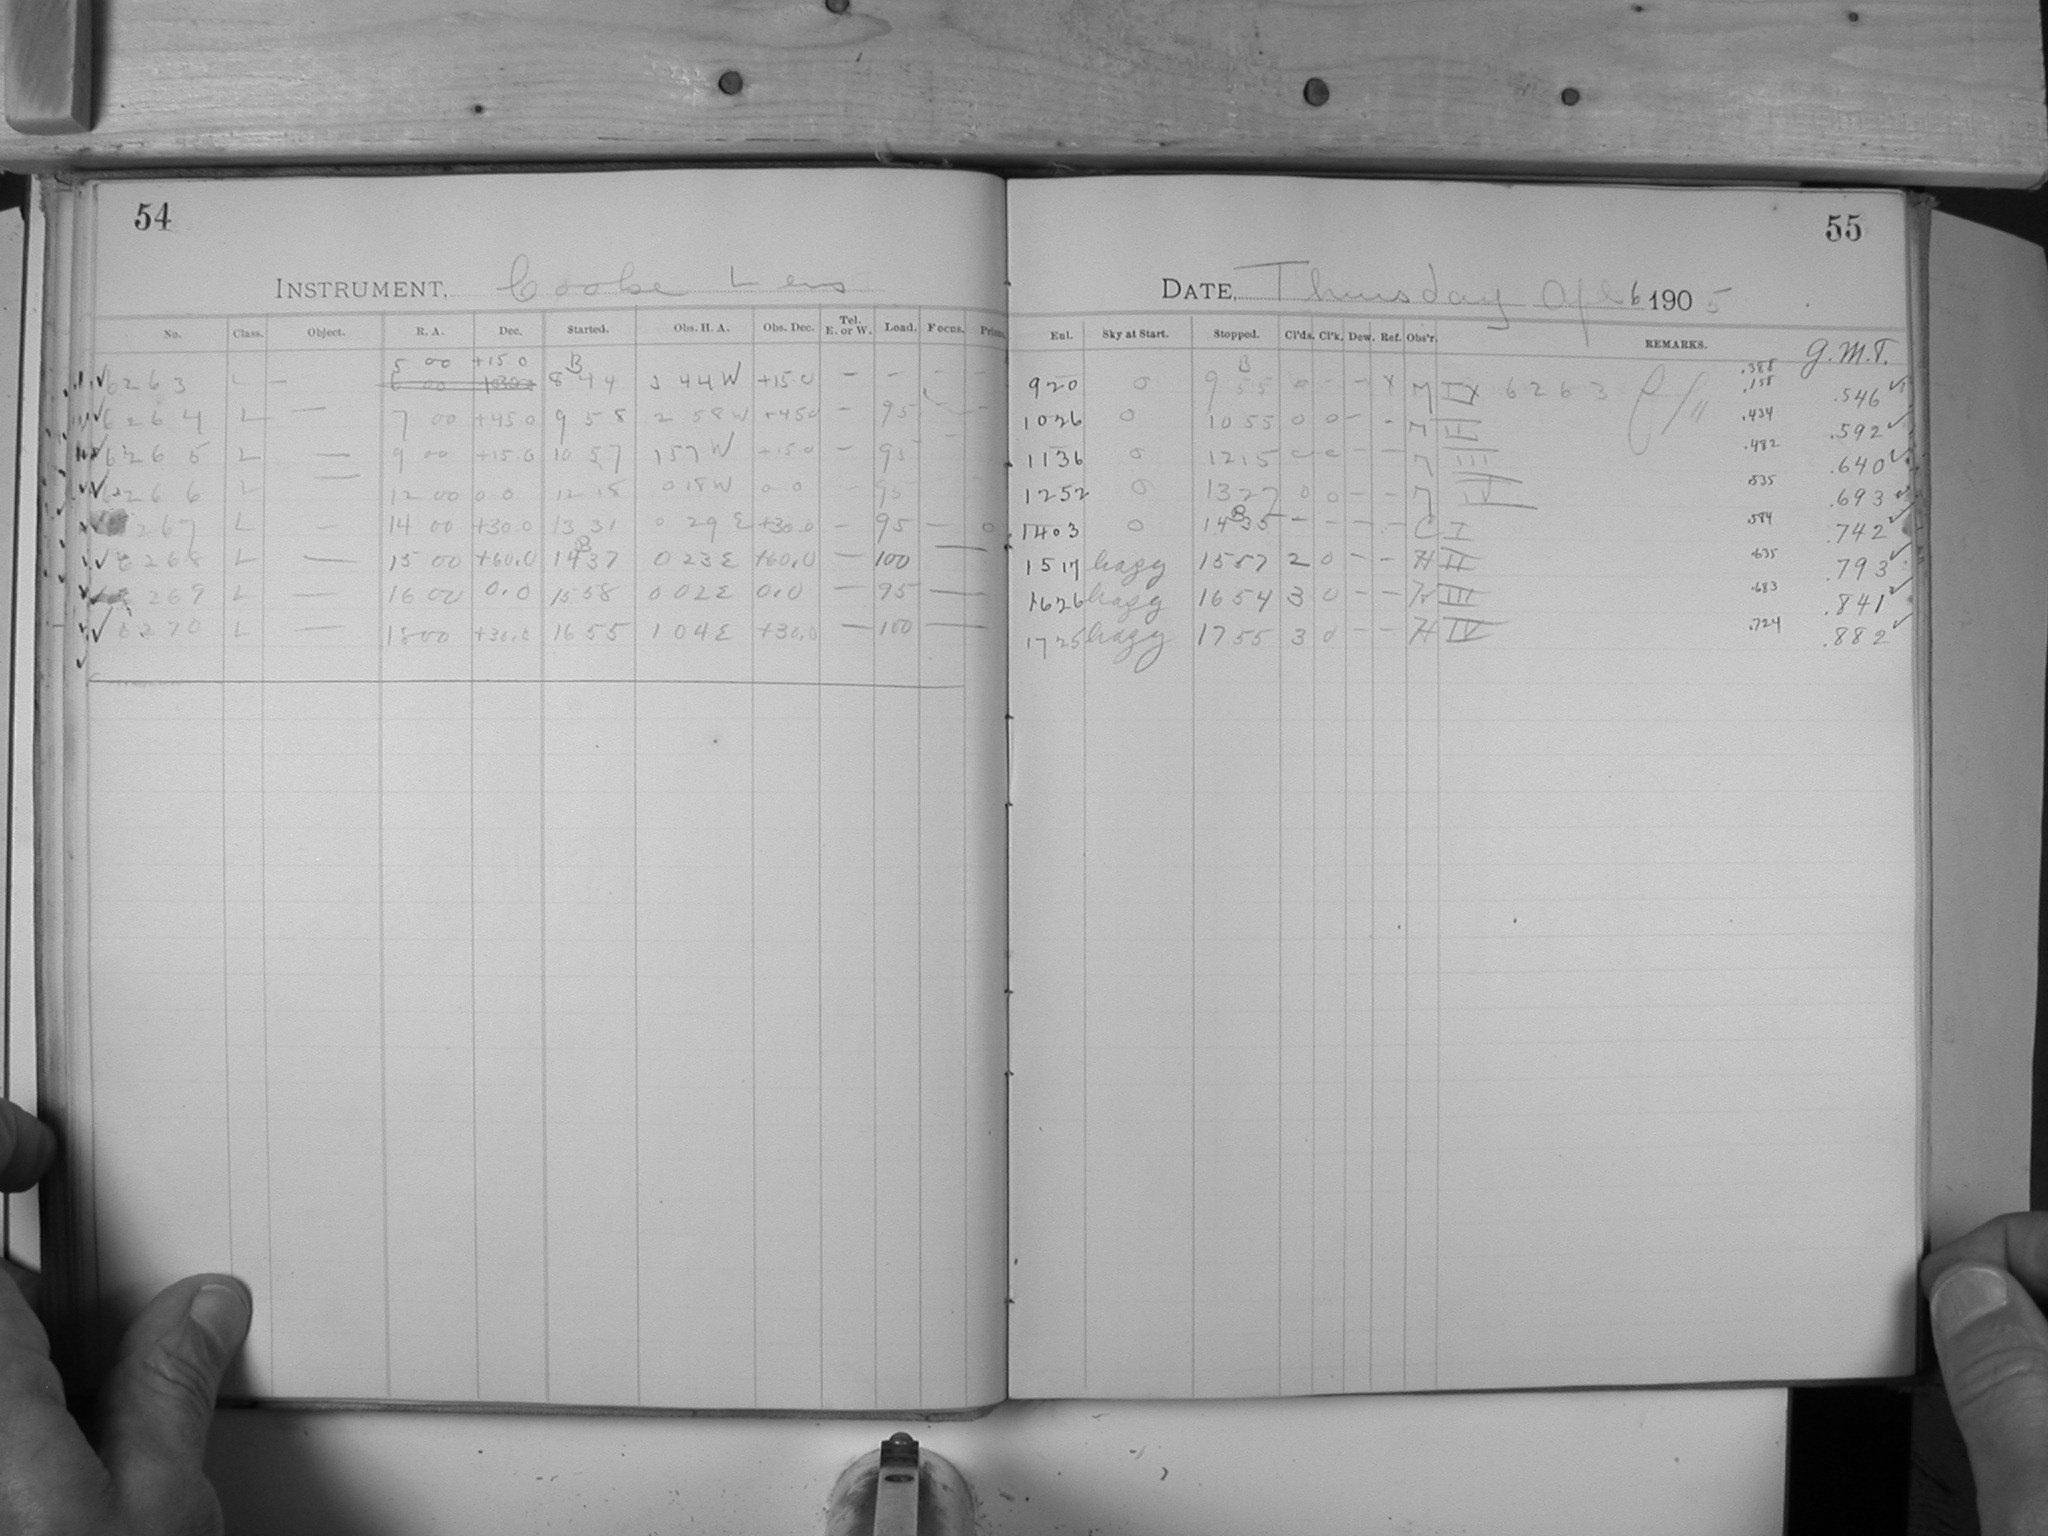 54
INSTRUMENT, Cooke Lens
No. Class. Object. R. A. Dec. Started. Obs. H. A. Obs. Dec. Tel. E. or W. Load. Focus.
5 00 +15.0 B
6263 L — 8 44 3 44 W +15.0 — — — —
6264 L — 7 00 +45.0 9 58 2 58 W +45.0 — 95 — —
6265 L — 9 00 +15.0 10 57 1 57 W +15.0 — 95 —
6266 L — 12 00 0.0 12 15 0 18 W 0.0 95
267 L — 14 00 +30.0 13 31 0 29 E +30.0 — 95 — 0
B
6268 L — 15 00 +60.0 14 37 0 23 E +60.0 — 100 —
269 L — 16 00 0.0 15 58 0 02 E 0.0 — 95 —
6270 L — 18 00 +30.0 16 55 1 04 E +30.0 — 100 —
55
DATE, Thursday Apl 6 1905
Enl. Sky at Start. Stopped. Cl'ds. Cl'k. Dew. Ref. Obs'r. REMARKS. G.M.T.
B .388
9 20 0 9 55 0 — — X M IX 6263 .158 .546
10 26 0 10 55 0 0 — - M II .434 .592
11 36 0 12 15 — — M III .482 .640
12 52 0 13 27 0 0 — — M IV .535 .693
B
14 03 0 14 35 — — — — C I .584 .742
15 17 hazy 15 57 2 0 — — H II .635 .793
16 26 hazy 16 54 3 0 — — H III .683 .841
17 25 hazy 17 55 3 0 — — H IV .724 .882